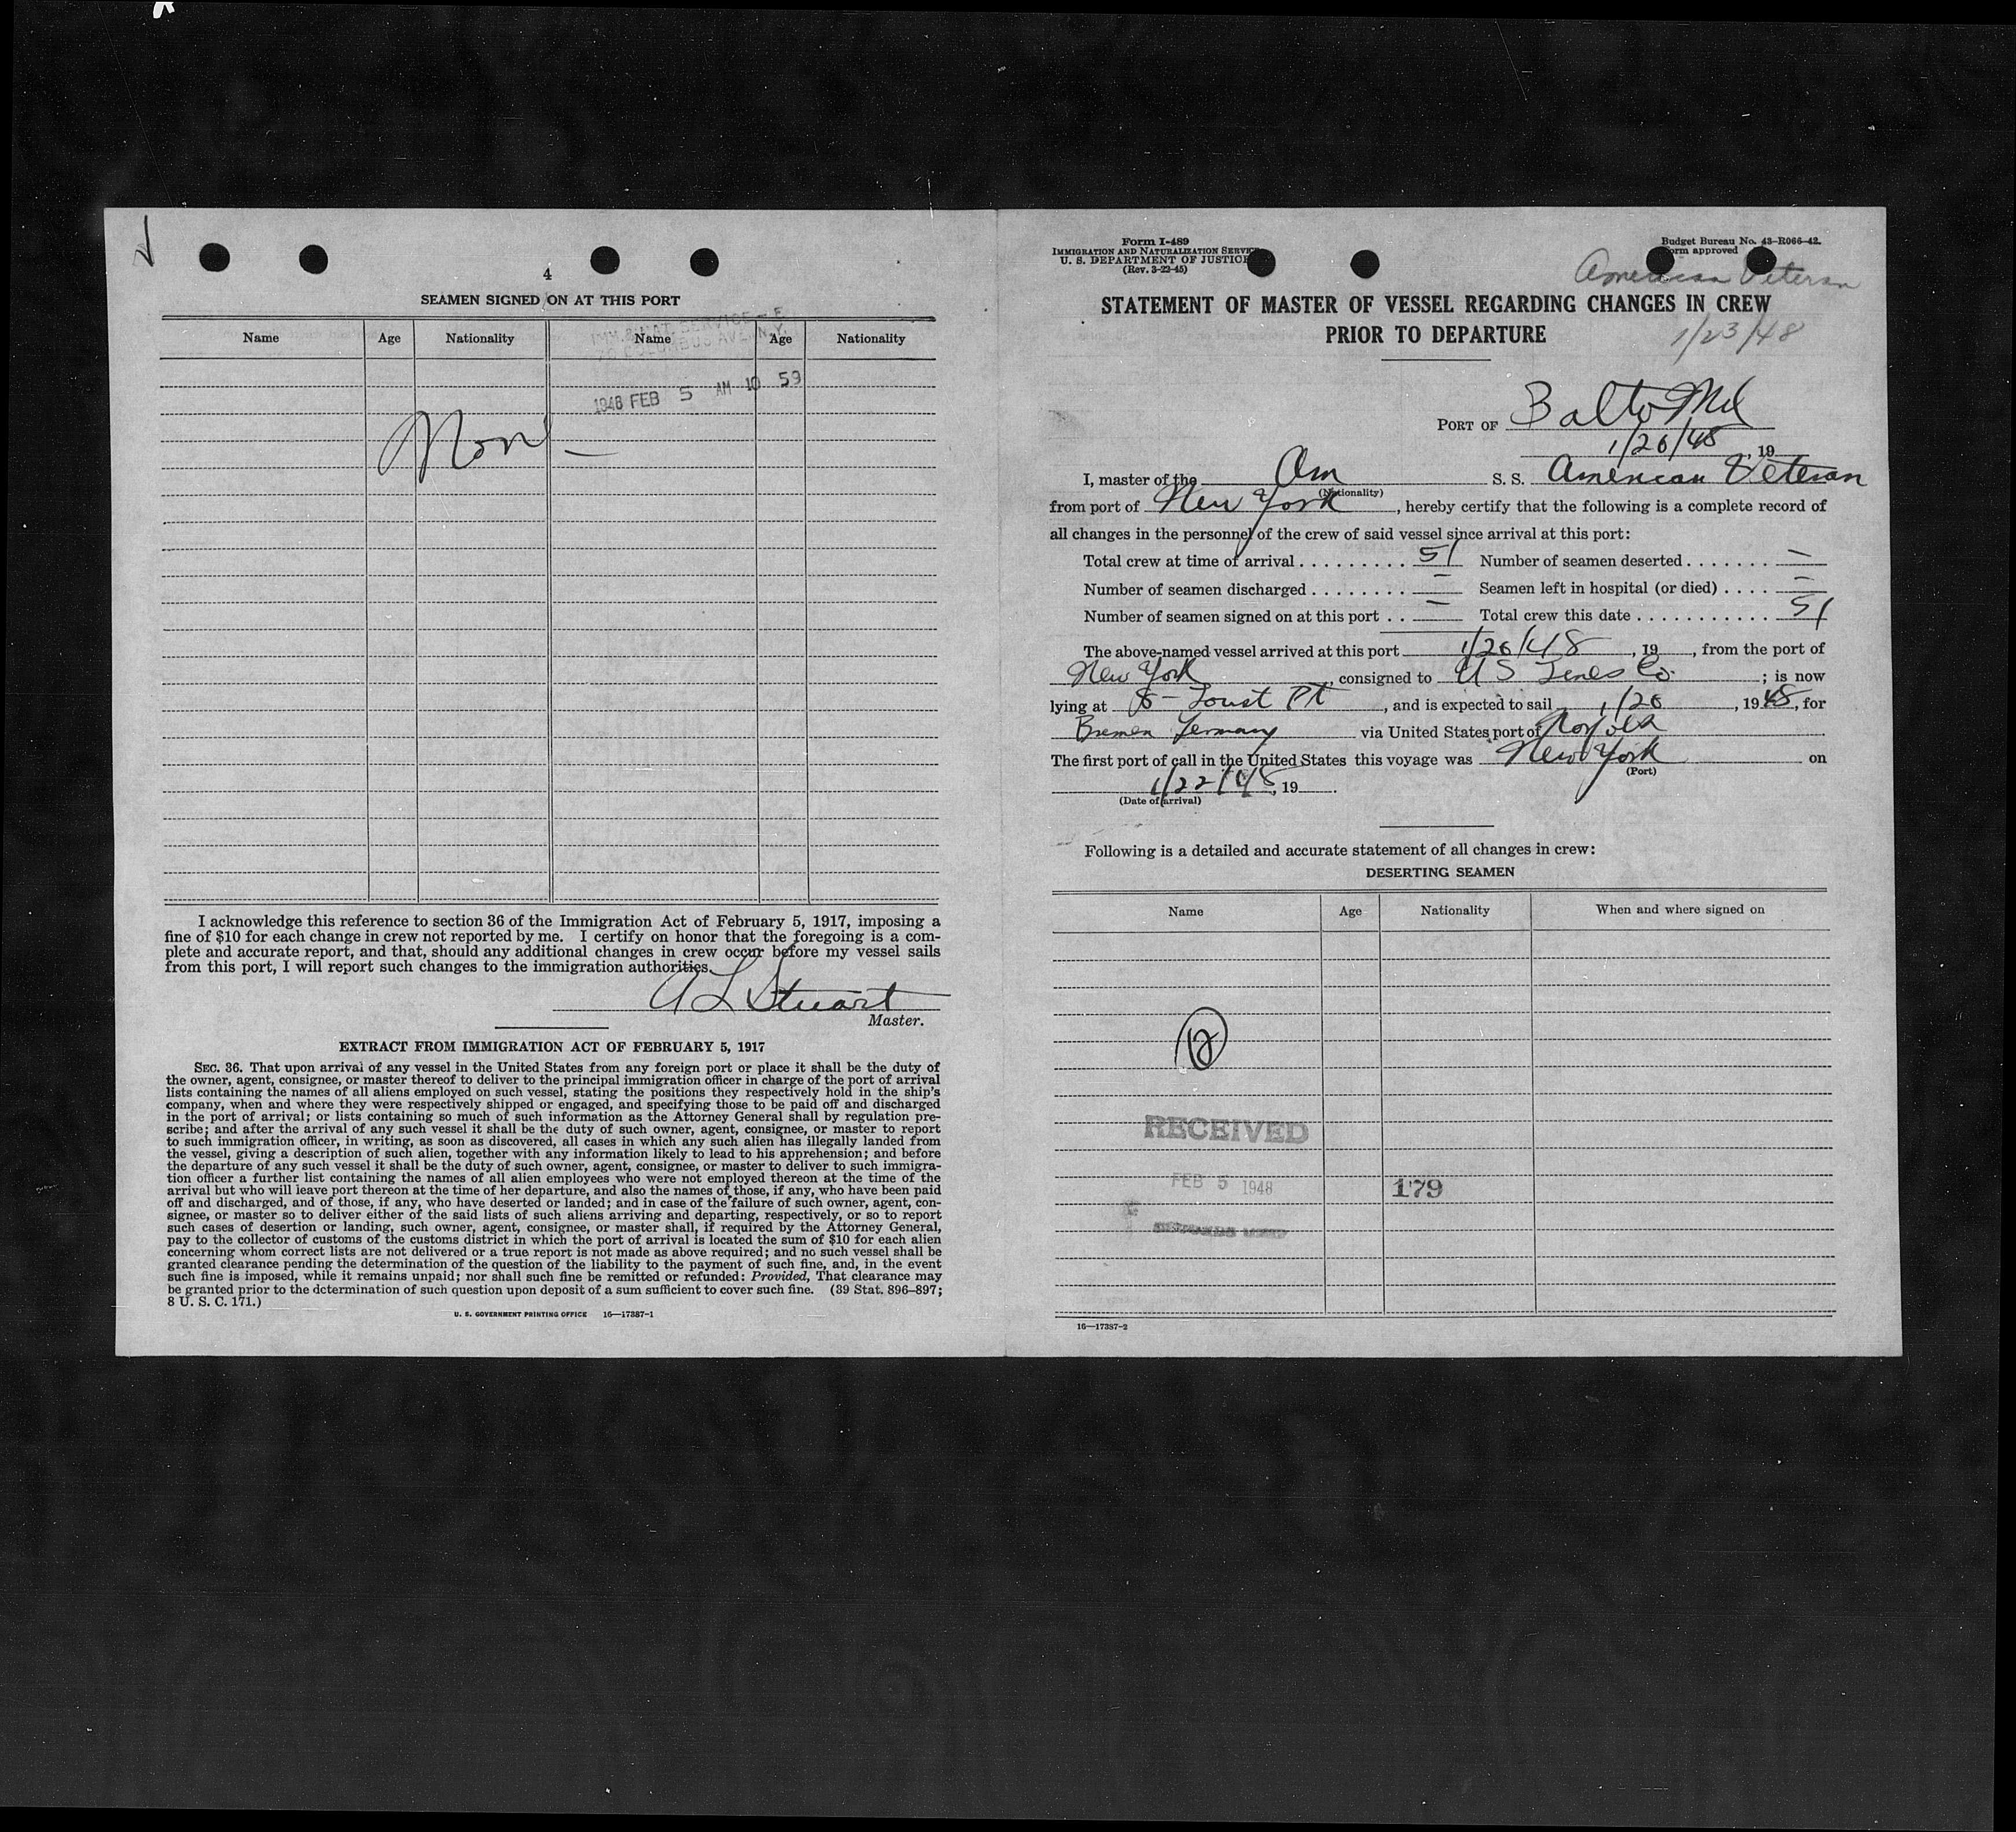 4
SEAMEN SIGNED ON AT THIS PORT
IMM. & NAT. SERVICE
COLUMBUS AVE. N.Y.
Name Age Nationality Name Age Nationality
1948 FEB 5 AM 10 59
None
I acknowledge this reference to section 36 of the Immigration Act of February 5, 1917, imposing a
fine of $10 for each change in crew not reported by me. I certify on honor that the foregoing is a com-
plete and accurate report, and that, should any additional changes in crew occur before my vessel sails
from this port, I will report such changes to the immigration authorities.
A L Stuart
Master.
EXTRACT FROM IMMIGRATION ACT OF FEBRUARY 5, 1917
SEC. 36. That upon arrival of any vessel in the United States from any foreign port or place it shall be the duty of
the owner, agent, consignee, or master thereof to deliver to the principal immigration officer in charge of the port of arrival
lists containing the names of all aliens employed on such vessel, stating the positions they respectively hold in the ship's
company, when and where they were respectively shipped or engaged, and specifying those to be paid off and discharged
in the port of arrival; or lists containing so much of such information as the Attorney General shall by regulation pre-
scribe; and after the arrival of any such vessel it shall be the duty of such owner, agent, consignee, or master to report
to such immigration officer, in writing, as soon as discovered, all cases in which any such alien has illegally landed from
the vessel, giving a description of such alien, together with any information likely to lead to his apprehension; and before
the departure of any such vessel it shall be the duty of such owner, agent, consignee, or master to deliver to such immigra-
tion officer a further list containing the names of all alien employees who were not employed thereon at the time of the
arrival but who will leave port thereon at the time of her departure, and also the names of those, if any, who have been paid
off and discharged, and of those, if any, who have deserted or landed; and in case of the failure of such owner, agent, con-
signee, or master so to deliver either of the said lists of such aliens arriving and departing, respectively, or so to report
such cases of desertion or landing, such owner, agent, consignee, or master shall, if required by the Attorney General,
pay to the collector of customs of the customs district in which the port of arrival is located the sum of $10 for each alien
concerning whom correct lists are not delivered or a true report is not made as above required; and no such vessel shall be
granted clearance pending the determination of the question of the liability to the payment of such fine, and, in the event
such fine is imposed, while it remains unpaid; nor shall such fine be remitted or refunded: Provided, That clearance may
be granted prior to the determination of such question upon deposit of a sum sufficient to cover such fine. (39 Stat. 896–897;
8 U. S. C. 171.)
U. S. GOVERNMENT PRINTING OFFICE 16—17387-1
Form I-489
IMMIGRATION AND NATURALIZATION SERVICE
U. S. DEPARTMENT OF JUSTICE
(Rev. 3-22-45)
Budget Bureau No. 43-R066-42.
Form approved
American Veteran
STATEMENT OF MASTER OF VESSEL REGARDING CHANGES IN CREW
PRIOR TO DEPARTURE
1/23/48
PORT OF Balto Md
1/26/48, 19
I, master of the Am S. S. American Veteran
(Nationality)
from port of New York, hereby certify that the following is a complete record of
all changes in the personnel of the crew of said vessel since arrival at this port:
Total crew at time of arrival . . . . . . . . . 51 Number of seamen deserted . . . . . . . —
Number of seamen discharged . . . . . . . . — Seamen left in hospital (or died) . . . . —
Number of seamen signed on at this port . . — Total crew this date . . . . . . . . . . . 51
The above-named vessel arrived at this port 1/26/48, 19, from the port of
New York, consigned to U S Lines Co. ; is now
lying at 8 - Locust Pt, and is expected to sail 1/26, 1948, for
Bremen Germany via United States port of Norfolk
The first port of call in the United States this voyage was New York on
(Port)
1/22/48, 19.
(Date of arrival)
Following is a detailed and accurate statement of all changes in crew:
DESERTING SEAMEN
Name Age Nationality When and where signed on
RECEIVED
FEB 5 1948 179
16—17387-2